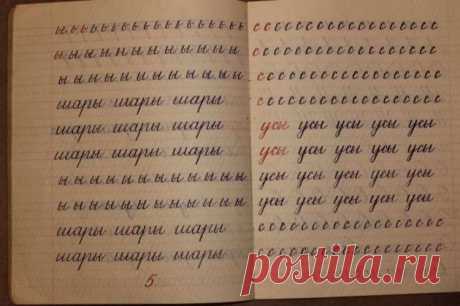 ь ь ь ь ь ь ь ь ь ь ь ь ь ь ь ь ь ь ь
ы ы ы ы ы ы ы ы ы ы ы ы
ы ы ы ы ы ы ы ы ы ы ы ы
шары шары шары
шары шары шары
шары шары шары
ы ы ы ы ы ы ы ы ы ы ы ы
ы ы ы ы ы ы ы ы ы ы ы ы
шары шары шары
шары шары шары
5
с с с с с с с с с с с с с с с с с с
с с с с с с с с с с с с с с с с с
с с с с с с с с с с с с с с с с с
с с с с с с с с с с с с с с с с с
усы усы усы усы усы
усы усы усы усы усы
усы усы усы усы усы
усы усы усы усы усы
с с с с с с с с с с с с с с с с с с
с с с с с с с с с с с с с с с с с с
postila.ru